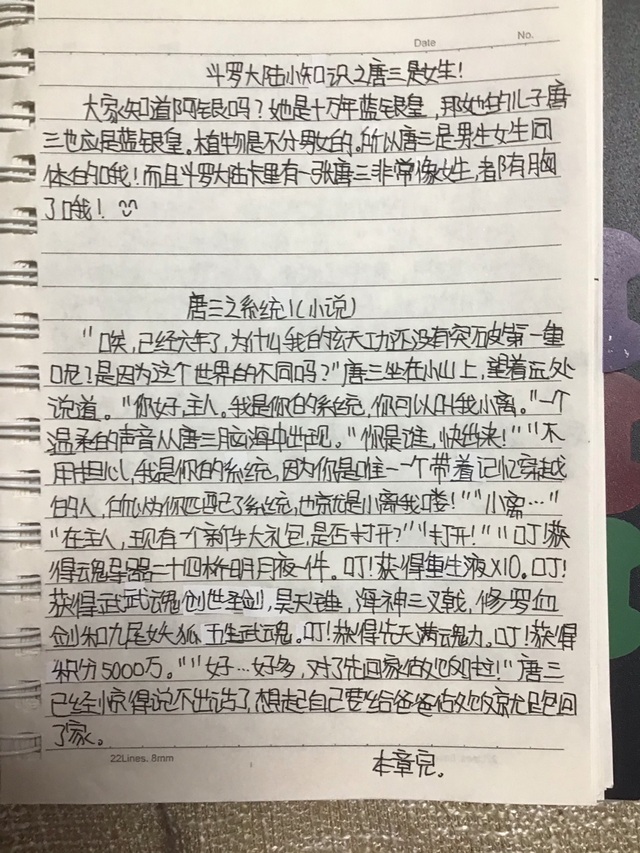 Date
No.
斗罗大陆小知识之唐三是女生！
大家知道阿银吗？她是十万年蓝银皇，那她的儿子唐
三也应是蓝银皇。植物是不分男女的。所以唐三是男生女生同
体的哦！而且斗罗大陆卡里有一张唐三非常像女生，都有胸
了哦！
唐三之系统1（小说）
“唉，已经六年了，为什么我的玄天功还没有突破第一重
呢？是因为这个世界的不同吗？”唐三坐在小山上，望着远处
说道。“你好，主人。我是你的系统，你可以叫我小离。”一个
温柔的声音从唐三脑海中出现。“你是谁，快出来！”“不
用担心，我是你的系统，因为你是唯一一个带着记忆穿越
的人，所以为你匹配了系统，也就是小离我喽！”“小离…”
“在主人，现有一个新手大礼包，是否打开？”“打开！”“叮！获
得魂导器二十四桥明月夜一件。叮！获得重生液X10。叮！
获得武武魂创世圣剑，昊天锤，海神三叉戟，修罗血
剑和九尾妖狐五生武魂。叮！获得先天满魂力。叮！获得
积分5000万。”“好…好多，对了先回家做饭啦！”唐三
已经惊得说不出话了，想起自己要给爸爸做饭就是回
了家。
22Lines. 8mm
本章完。